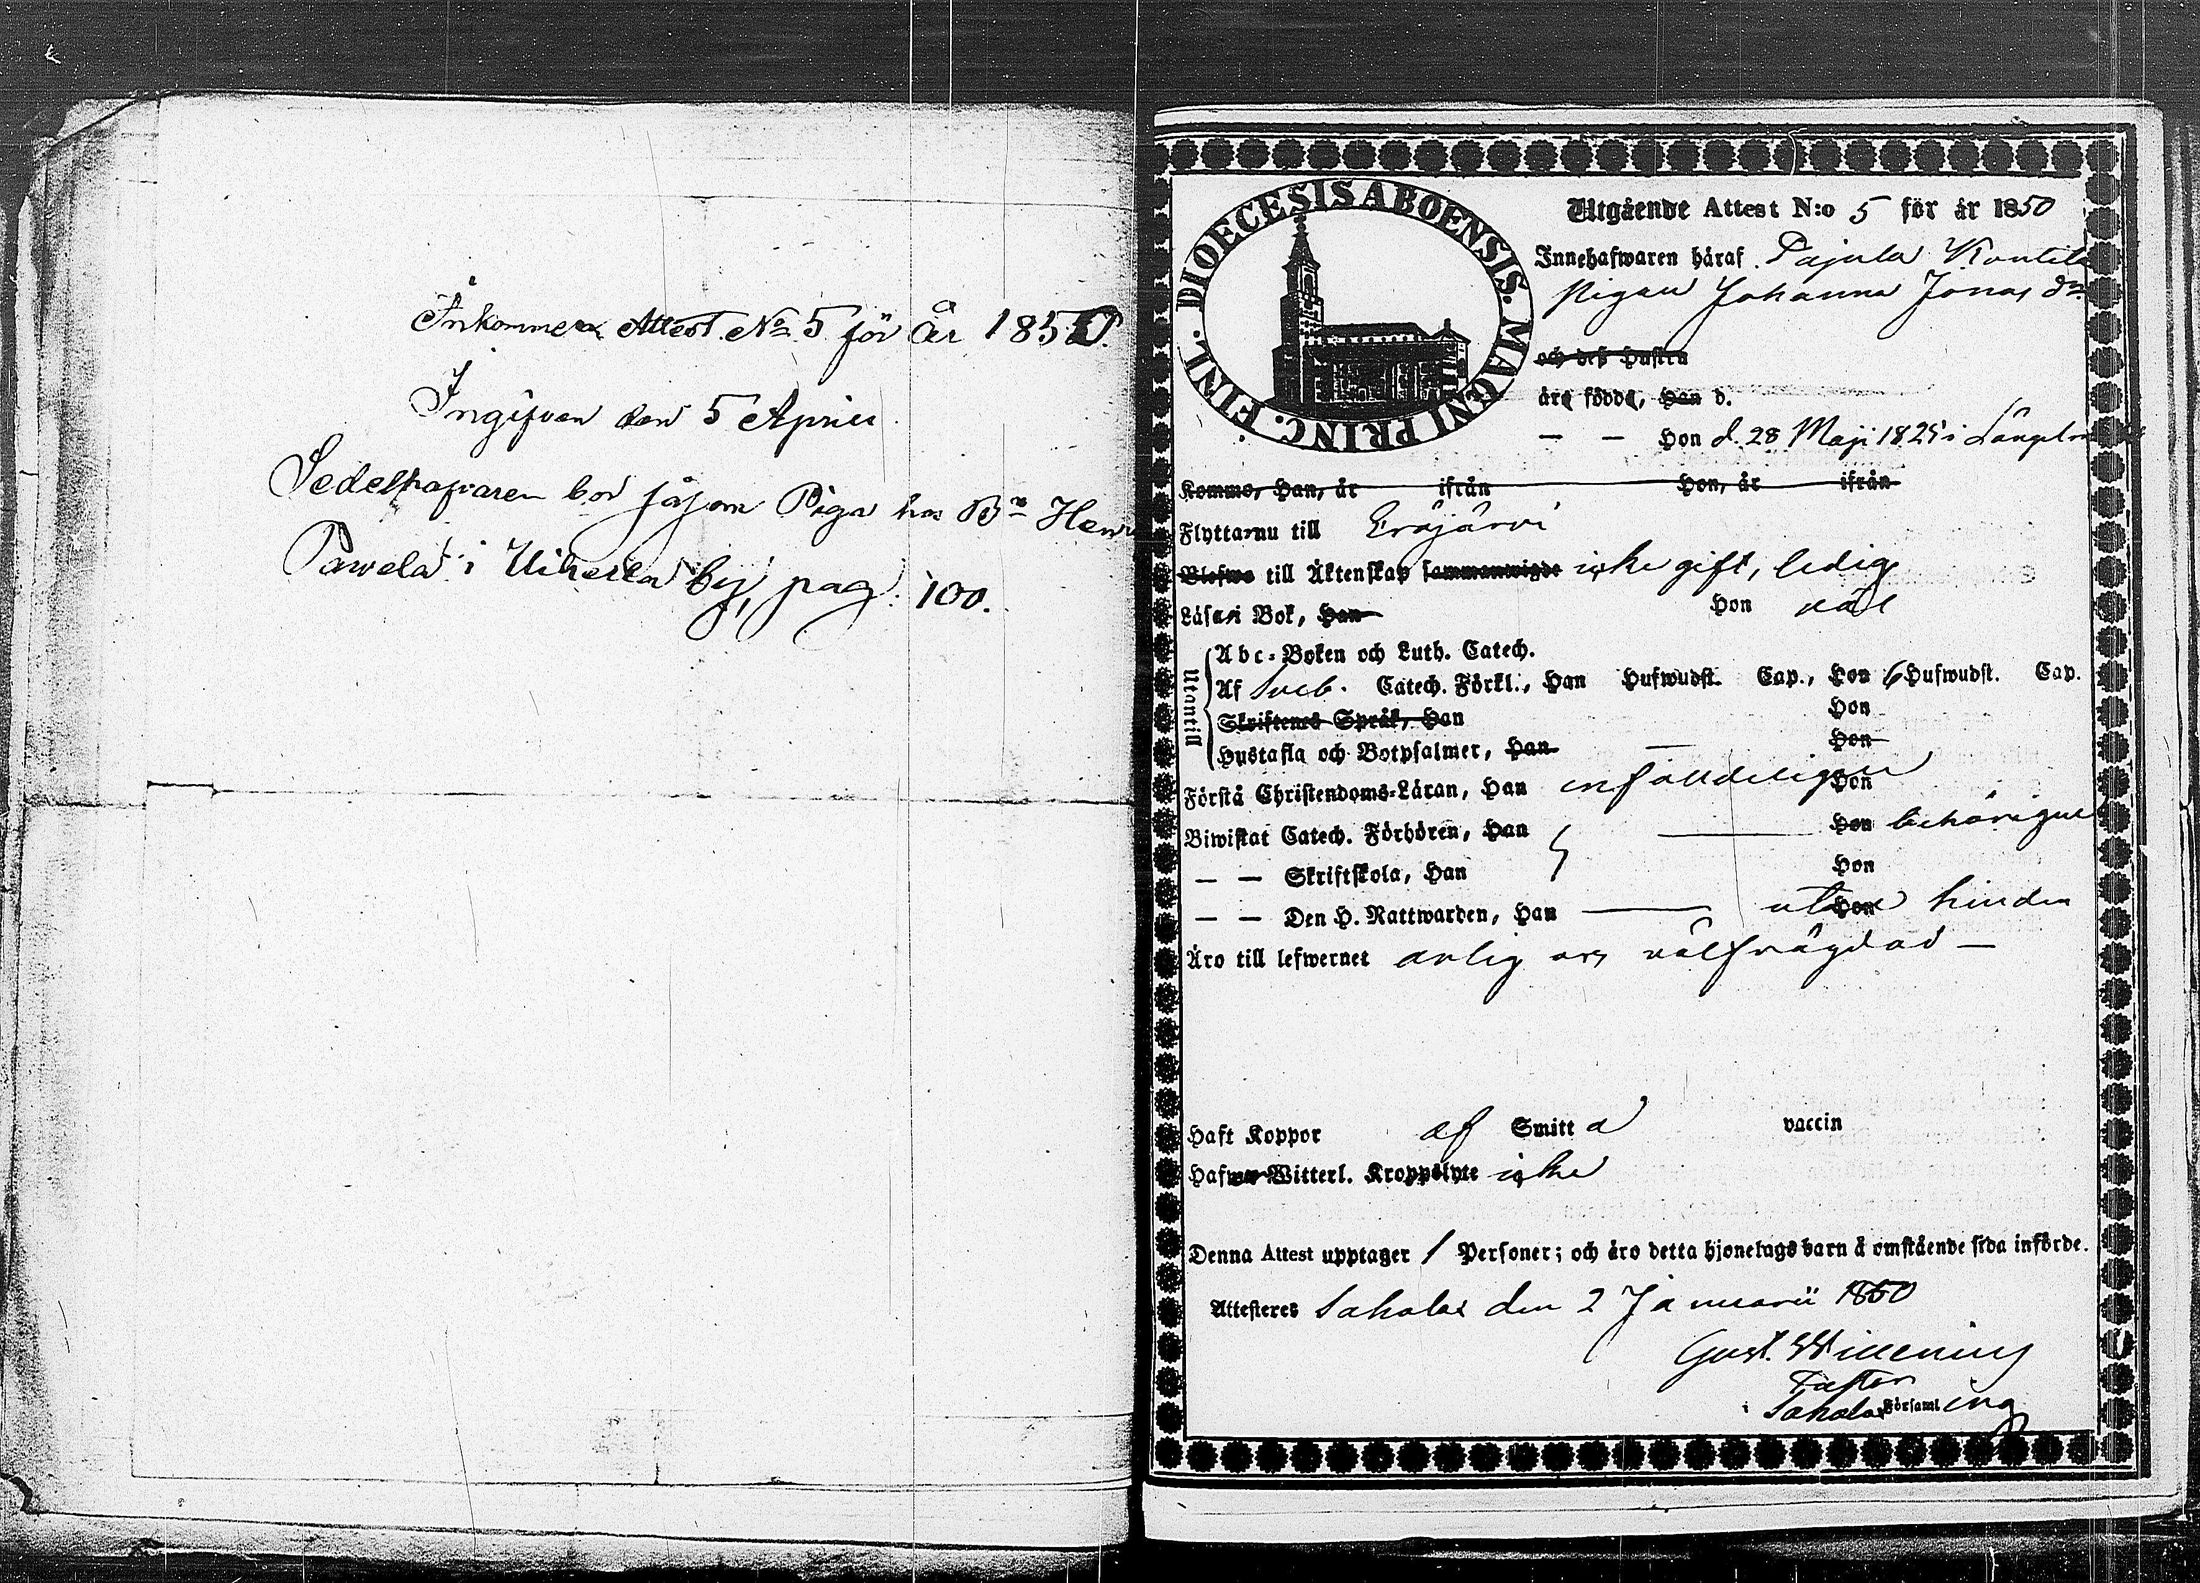 Inkommen Attest No 5 för år 1850.
Ingifven den 5 April
Sedelhafvaren bor såsom Piga hos Bn Henr
Pawela i Uiherla by, pag: 100.
DIOECESIS ABOENSIS. MAGNI PRINC. FINL.
Utgående Attest N:o 5 för år 1850
Innehafwaren häraf Pajula Kontila
Pigan Johanna Jonas dr
och dess Hustru
äro födde, Han d.
— — Hon d. 28 Maji 1825 i
Kommo, Han, år ifrån Hon, år ifrån
Flytta nu till Eräjärvi
Blefwo till Äktenskap sammanwigde icke gift, ledig
Läsa i Bok, Han Hon väl
Utantill
Abc-Boken och Luth. Catech.
Af Sveb. Catech. Förkl., Han Hufwudst. Cap., Hon 6 Hufwudst. Cap.
Skriftenes Språk, Han Hon
Hustafla och Botpsalmer, Han — Hon
Förstå Christendoms-Läran, Han enfaldeligen Hon
Biwistat Catech. Förhören, Han — Hon behörigen
— — Skriftskola, Han Hon
— — Den H. Nattwarden, Han — utan Hon hinder
Äro till lefwernet ärlig och välfrägdad —
Haft Koppor af Smitta vaccin
Hafwa Witterl. Kroppslyte icke
Denna Attest upptager 1 Personer; och äro detta hjonelags barn å omstående sida införde.
Attesteres Sahalax den 2 Januarii 1850
Gust.
Pastor
i Sahalax Församling